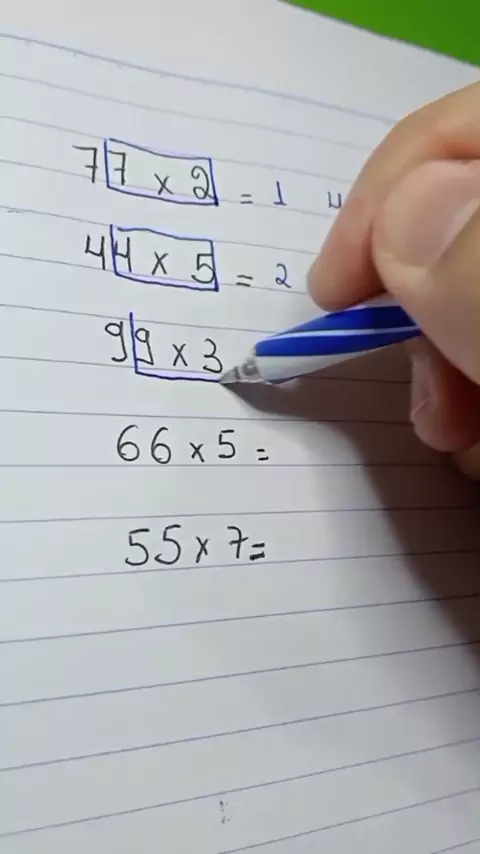 77 x 2 = 1 4
44 x 5 = 2
99 x 3
66 x 5 =
55 x 7 =